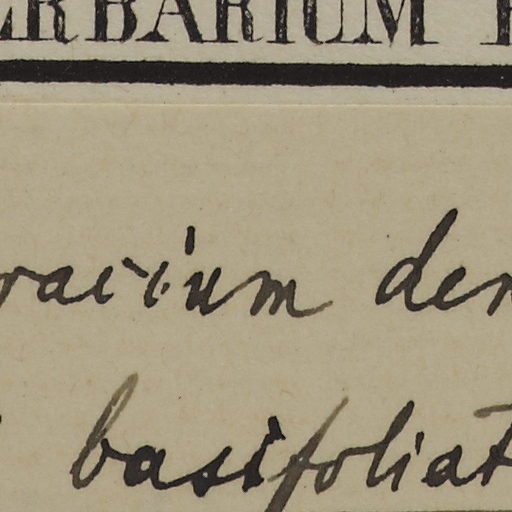 ERBARIUM
racium den
basifoliat